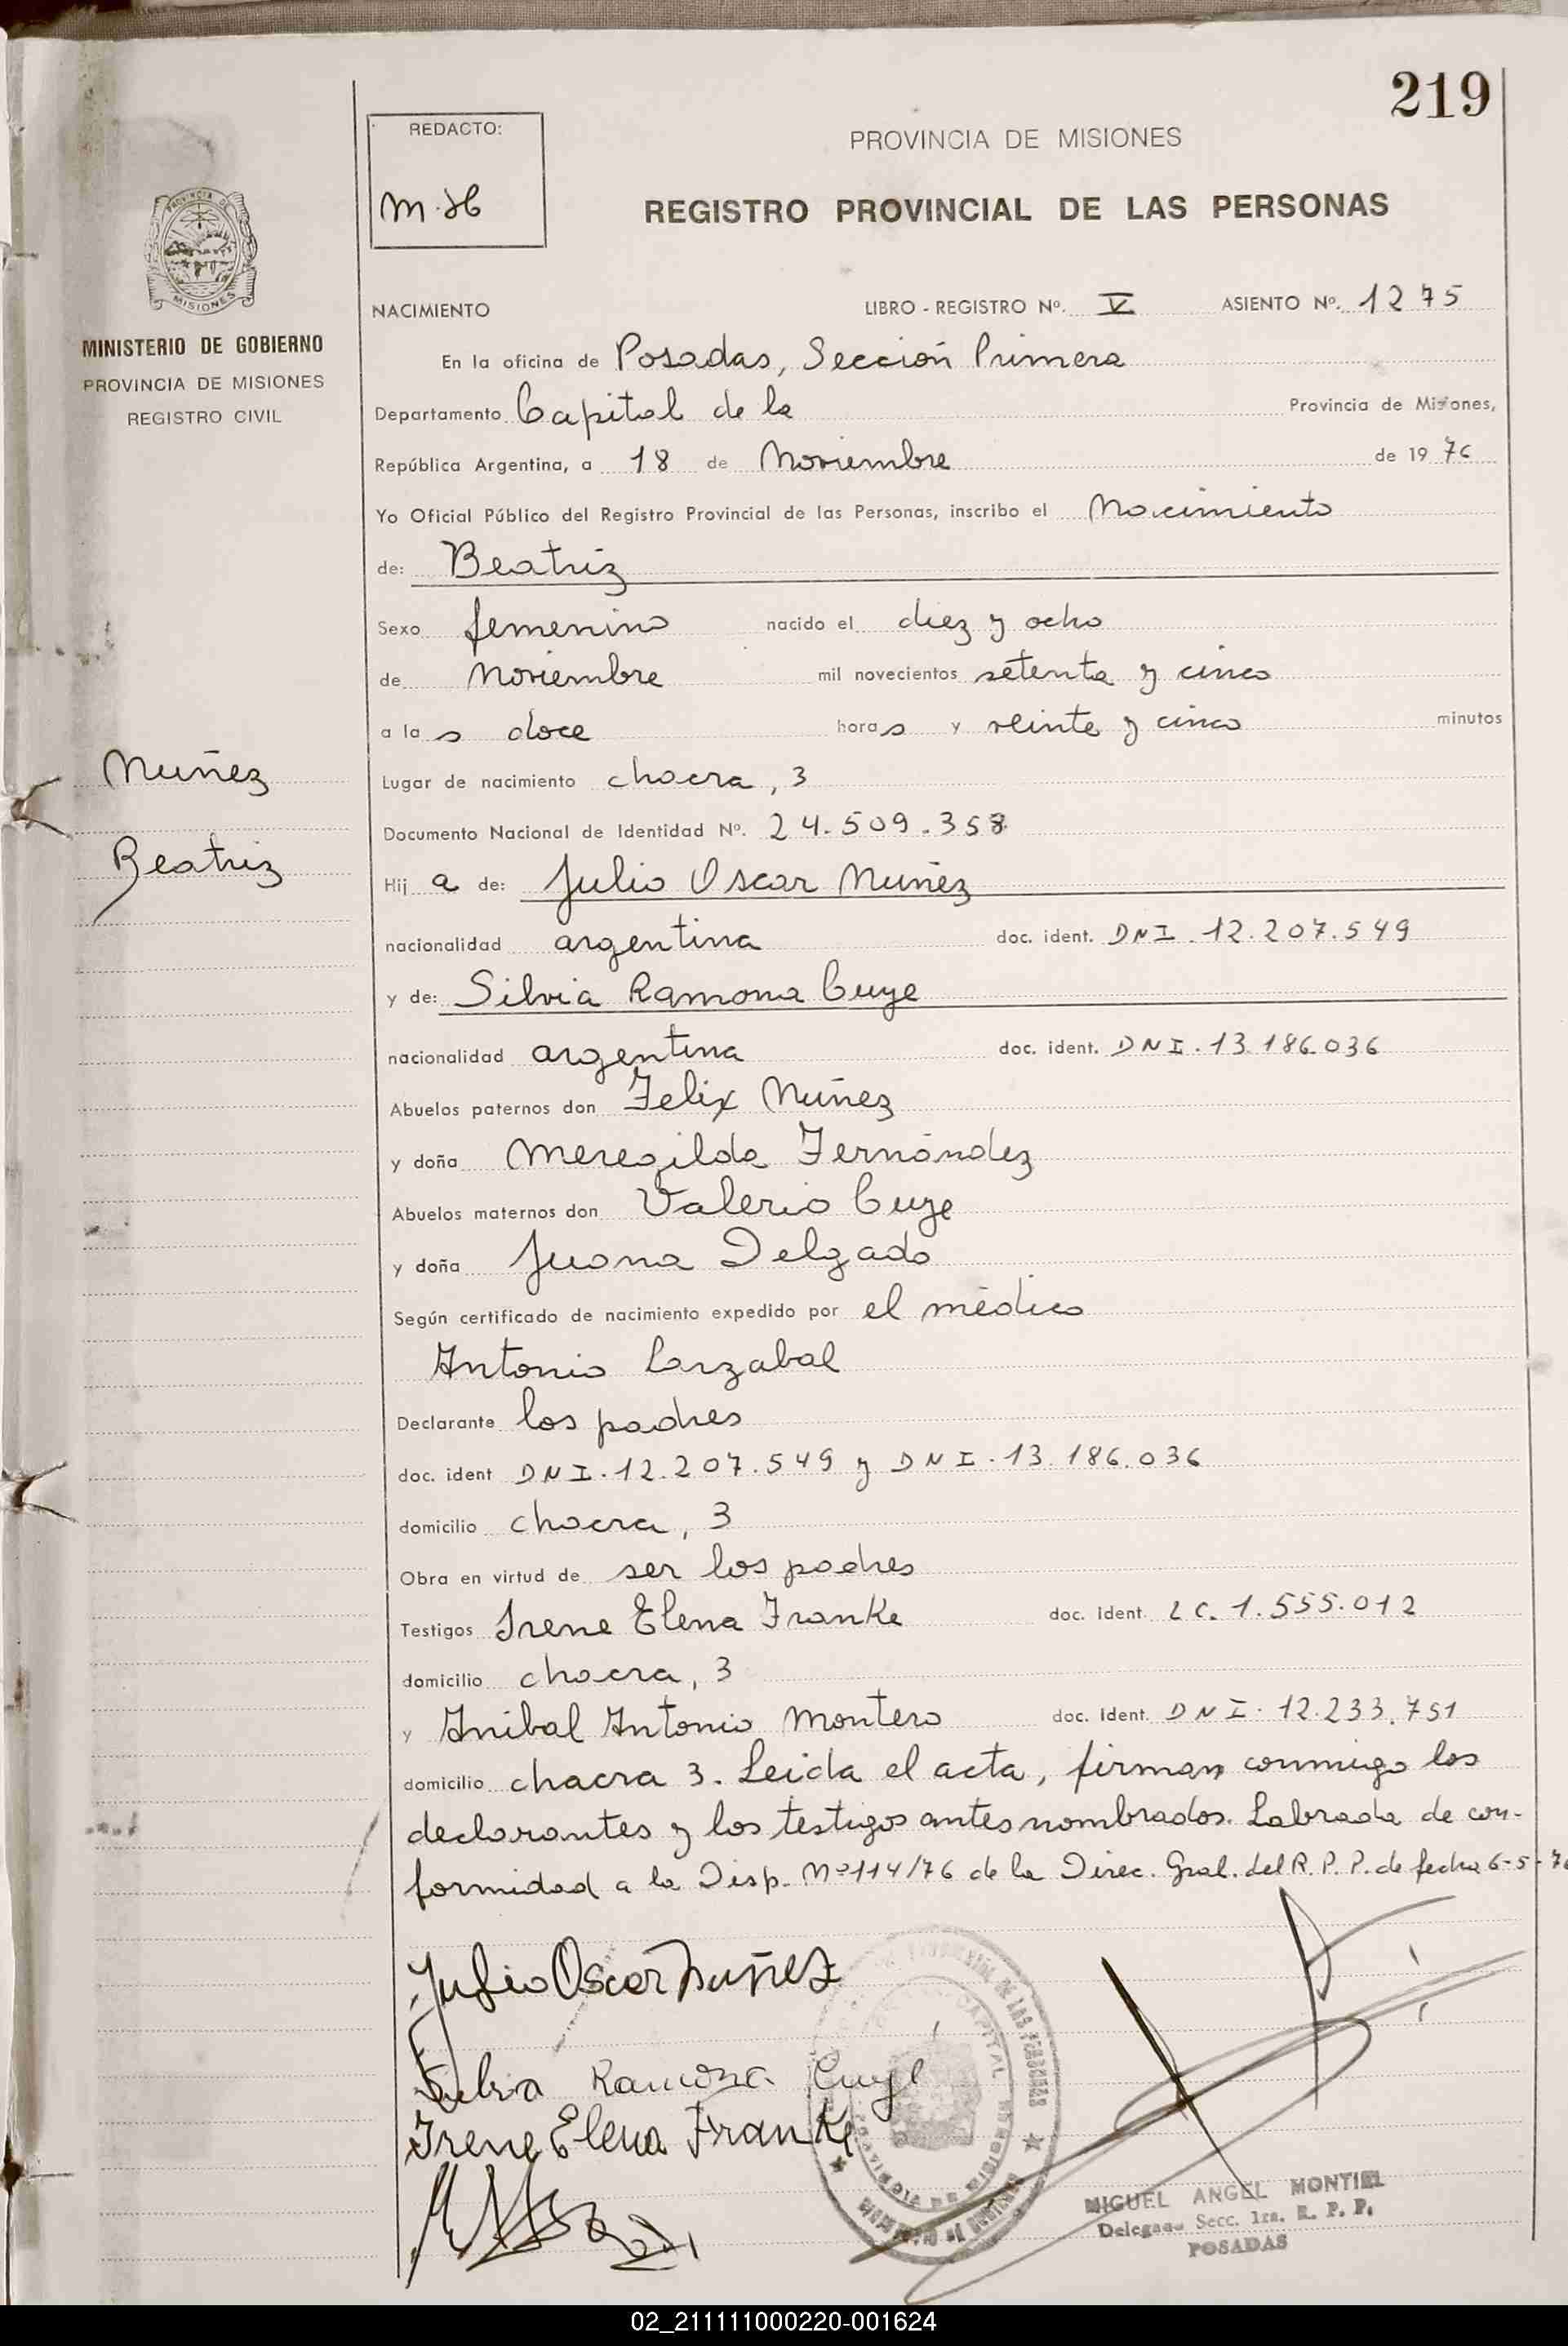 219
REDACTO:
M.H
PROVINCIA DE MISIONES
REGISTRO PROVINCIAL DE LAS PERSONAS
PROVINCIA DE
MISIONES
MINISTERIO DE GOBIERNO
PROVINCIA DE MISIONES
REGISTRO CIVIL
NACIMIENTO LIBRO - REGISTRO Nº. V ASIENTO Nº. 1275
En la oficina de Posadas, Sección Primera
Departamento Capital de la Provincia de Misiones,
República Argentina, a 18 de Noviembre de 1976
Yo Oficial Público del Registro Provincial de las Personas, inscribo el Nacimiento
de: Beatriz
Sexo femenino nacido el diez y ocho
de Noviembre mil novecientos setenta y cinco
a las doce horas y veinte y cinco minutos
Nuñez
Beatriz
Lugar de nacimiento chacra, 3
Documento Nacional de Identidad Nº. 24.509.358
Hija de: Julio Oscar Nuñez
nacionalidad argentina doc. ident. DNI. 12.207.549
y de: Silvia Ramona Cuye
nacionalidad argentina doc. ident. DNI. 13.186.036
Abuelos paternos don Felix Nuñez
y doña Meregilda Fernández
Abuelos maternos don Valerio Cuye
y doña Juana Delgado
Según certificado de nacimiento expedido por el médico
Antonio Larzabal
Declarante los padres
doc. ident DNI. 12.207.549 y DNI. 13.186.036
domicilio chacra, 3
Obra en virtud de ser los padres
Testigos Irene Elena Franke doc. ident. LC. 1.555.012
domicilio chacra, 3
y Anibal Antonio Montero doc. Ident. DNI. 12.233.751
domicilio chacra 3. Leida el acta, firman conmigo los
declarantes y los testigos antes nombrados. Labrada de con-
formidad a la Disp. Nº 114/76 de la Direc. Gral. del R.P.P. de fecha 6-5-76
Julio Oscar Nuñez
Silvia Ramona Cuye
Irene Elena Franke
MIGUEL ANGEL MONTIEL
Delegado Secc. 1ra. R. P. P.
POSADAS
02_211111000220-001624